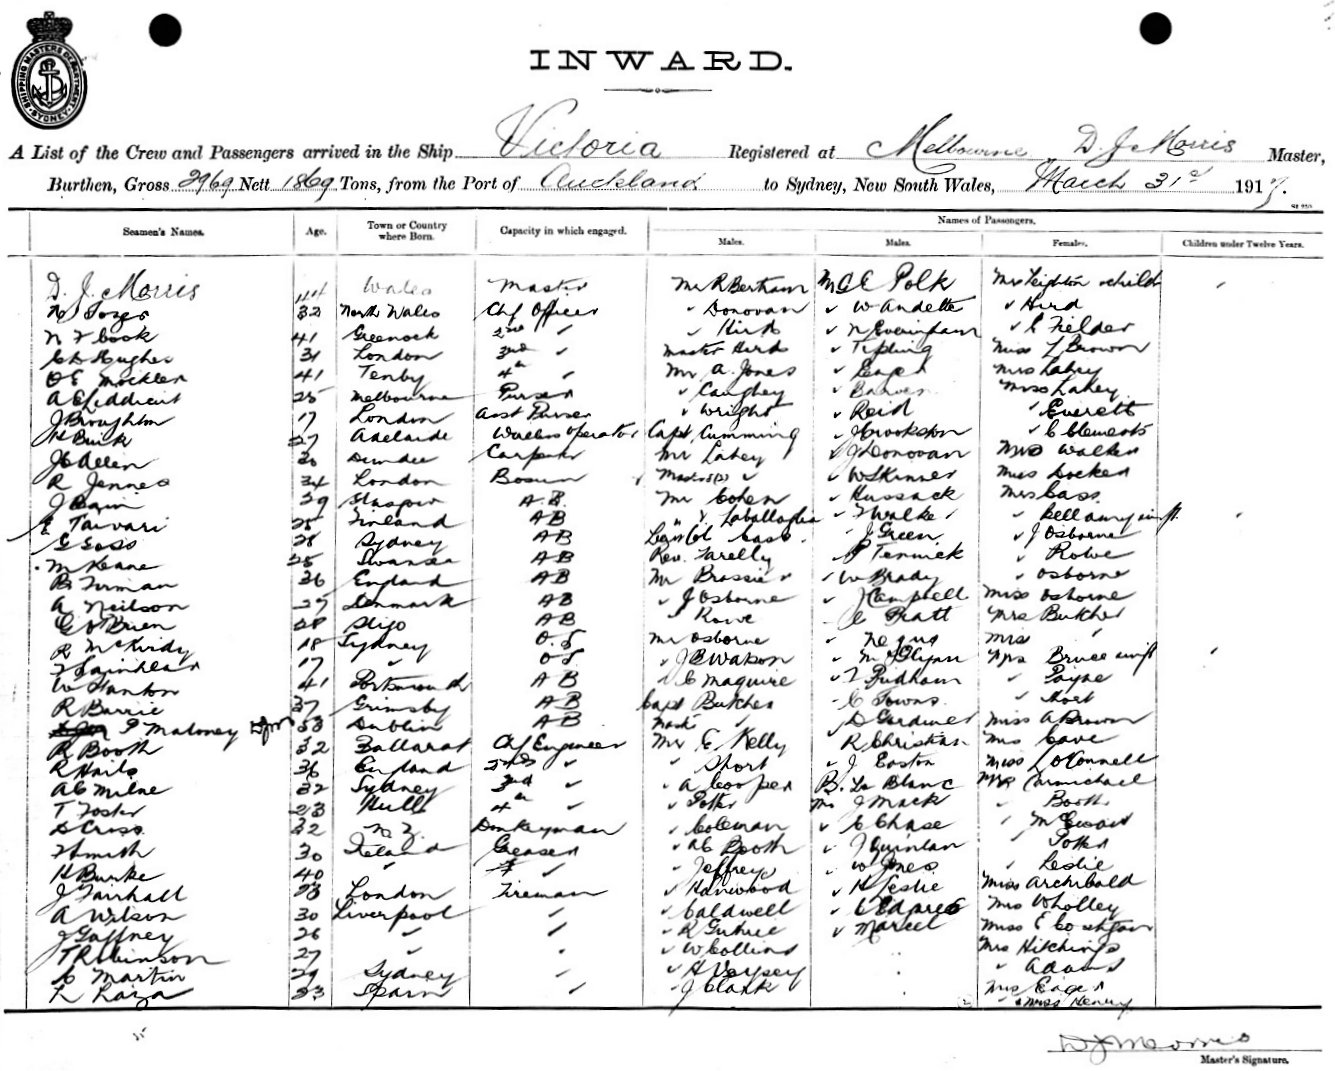 SHIPPING MASTERS DEPARTMENT SYDNEY
INWARD.
A List of the Crew and Passengers arrived in the Ship Victoria Registered at Melbourne D. J. Morris Master,
Burthen, Gross 2969 Nett 1869 Tons, from the Port of Auckland to Sydney, New South Wales, March 31st 1917.
Seamen's Names. Age. Town or Country where Born. Capacity in which engaged. Names of Passengers.
Males. Males. Females. Children under Twelve Years.
D. J. Morris 44 Wales Master Mr R Bertham Mr C Polk Mrs Leighton & child
32 North Wales Chf Officer " Donovan " W Andette " Hird
Cook 41 Greenock 2nd " " Hird " N Everingham " C Fielder
Hughes 31 London 3rd " Master Hird " Tipling Miss L Brown
O E Mockler 41 Tenby 4th " Mr A. Jones " Eager Mrs Lahey
A E Liddicut 25 Melbourne Purser " Caughey Miss Lahey
J Broughton 17 London Asst Purser " Wright " Reid " Everett
H Burk 27 Adelaide Wireless Operator Capt Cumming " J Crookston " C Clements
J C Allen 30 Dundee Carpenter Mr Lahey " J Donovan Mrs Walker
R Jennes 34 London Bosun Master(s) " " W Skinner Miss Docker
J Bain 29 Glasgow A.B. Mr Cohen " Hussack Mrs Cass
Taivari 25 Finland AB " Laballaglia " Walke " Bellamy
G Goss 28 Sydney AB Cass " J Green " J Osborne
M Keane 25 Swansea AB Rev. Farelly " Fenwick " Rowe
B Firman 36 England AB Mr Brassie " W Brady " Osborne
A Neilson 27 Denmark AB " J Osborne " J Campbell Miss Osborne
G O'Brien 28 Sligo AB " Rowe " C Pratt Mrs Butcher
R McKirdy 18 Sydney O.S Mr Osborne " Negus Mrs "
17 " O.S " J B Watson " M J Glynn Mrs Bruce
W Stanton 41 Portsmouth AB " C Maguire " T Pudham " Payne
R Barrie 37 Grimsby AB Capt Butcher " C Towns " Hort
P Maloney DJM 53 Dublin AB Mast " D Gardiner Miss A Brown
R Booth 32 Ballarat Chf Engineer Mr E Kelly R Christian Mrs Cave
R Hails 36 England 2nd " " Short " J Easton Miss L O'Connell
A C Milne 32 Sydney 3rd " " A Cooper B. La Blanc Mrs Carmichael
T Foster 23 Hull 4th " " Potter Mr J Mack " Booth
D Cross 32 N.Z. Donkeyman " Coleman " C Chase " McEwan
T Smith 30 Ireland Greaser " A C Booth " J Quinlan " Potter
H Burke 40 " " " Jeffreys " W Jones " Leslie
J Fairhall 23 London Fireman " Harwood " H Leslie Miss Archibald
A Wilson 30 Liverpool " " Caldwell Mrs Wholley
J Gaffney 26 " " " R Guthrie " Marcel Miss E Coghlan
T Robinson 27 " " " W Collins Mrs Hitchings
C Martin 29 Sydney " H Vaysey " Adams
23 Spain " " J Clark Mrs Eager
" Miss Henry
D J Morris
Master's Signature.